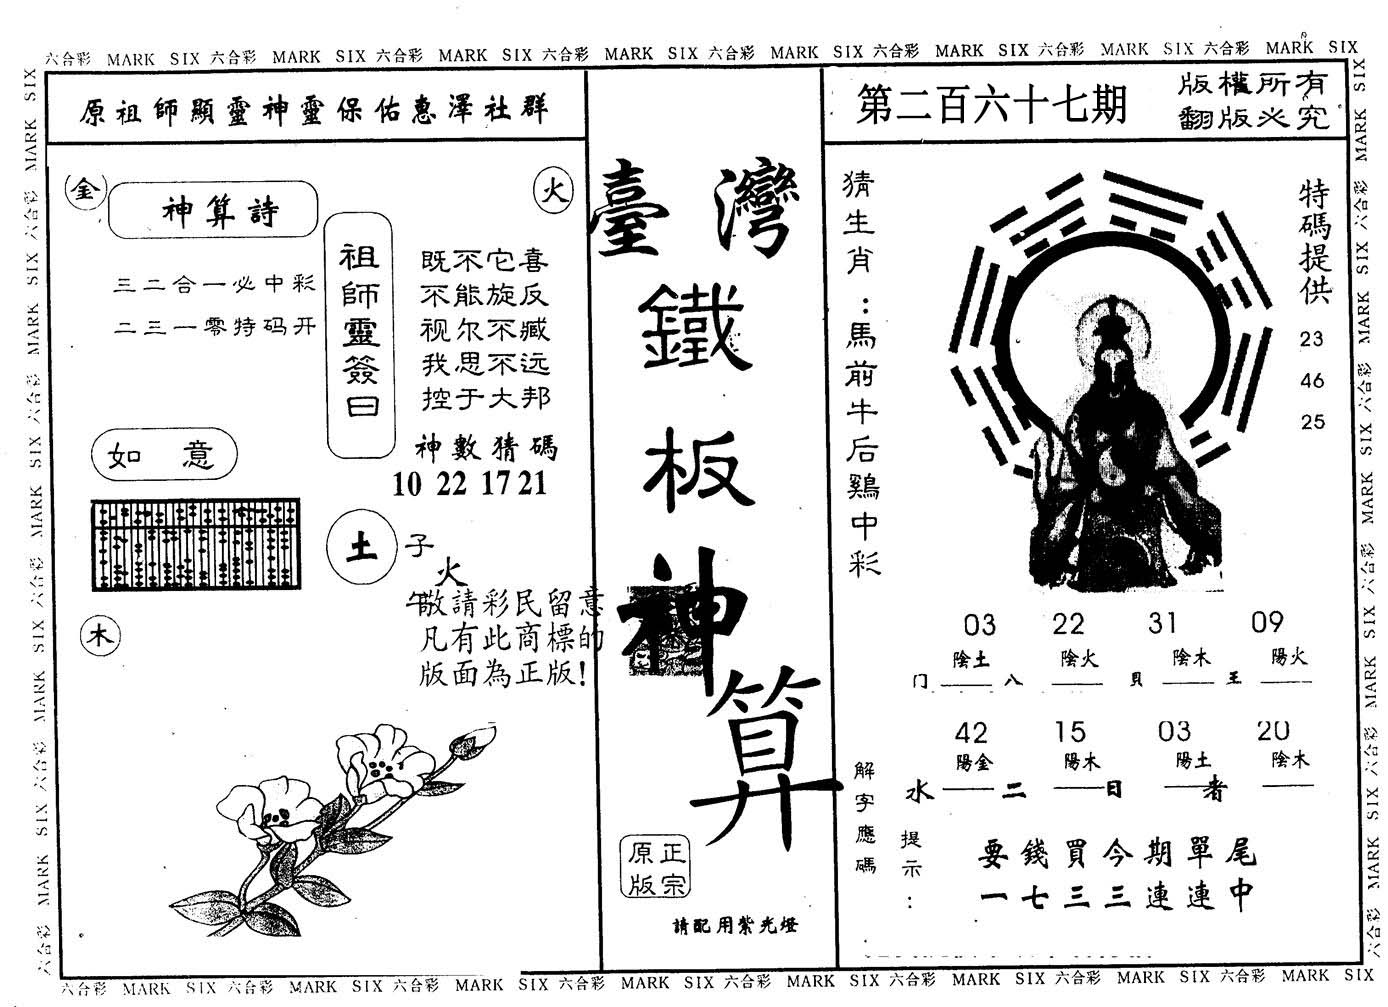 六合彩 MARK SIX 六合彩 MARK SIX 六合彩 MARK SIX 六合彩 MARK SIX 六合彩 MARK SIX 六合彩 MARK SIX 六合彩 MARK SIX 六合彩 MARK SIX
原祖師顯靈神靈保佑惠澤社群
第二百六十七期
版權所有
翻版必究
金
火
神算詩
三二合一必中彩
二三一零特码开
祖師靈簽曰
既不它喜
不能旋反
视尔不臧
我思不远
控于大邦
神數猜碼
10 22 17 21
如意
土
子
火
午
木
敬請彩民留意
凡有此商標的
版面為正版!
臺灣
鐵
板
神
算
正宗
原版
請配用紫光燈
猜生肖:馬前牛后鷄中彩
特碼提供
23
46
25
03 22 31 09
陰土 陰火 陰木 陽火
门 八 貝 王
42 15 03 20
陽金 陽木 陽土 陰木
水 二 日 者
解字應碼
提示:
要錢買今期單尾
一七三三連連中
六合彩 MARK SIX 六合彩 MARK SIX 六合彩 MARK SIX 六合彩 MARK SIX 六合彩 MARK SIX 六合彩 MARK SIX 六合彩 MARK SIX 六合彩 MARK SIX